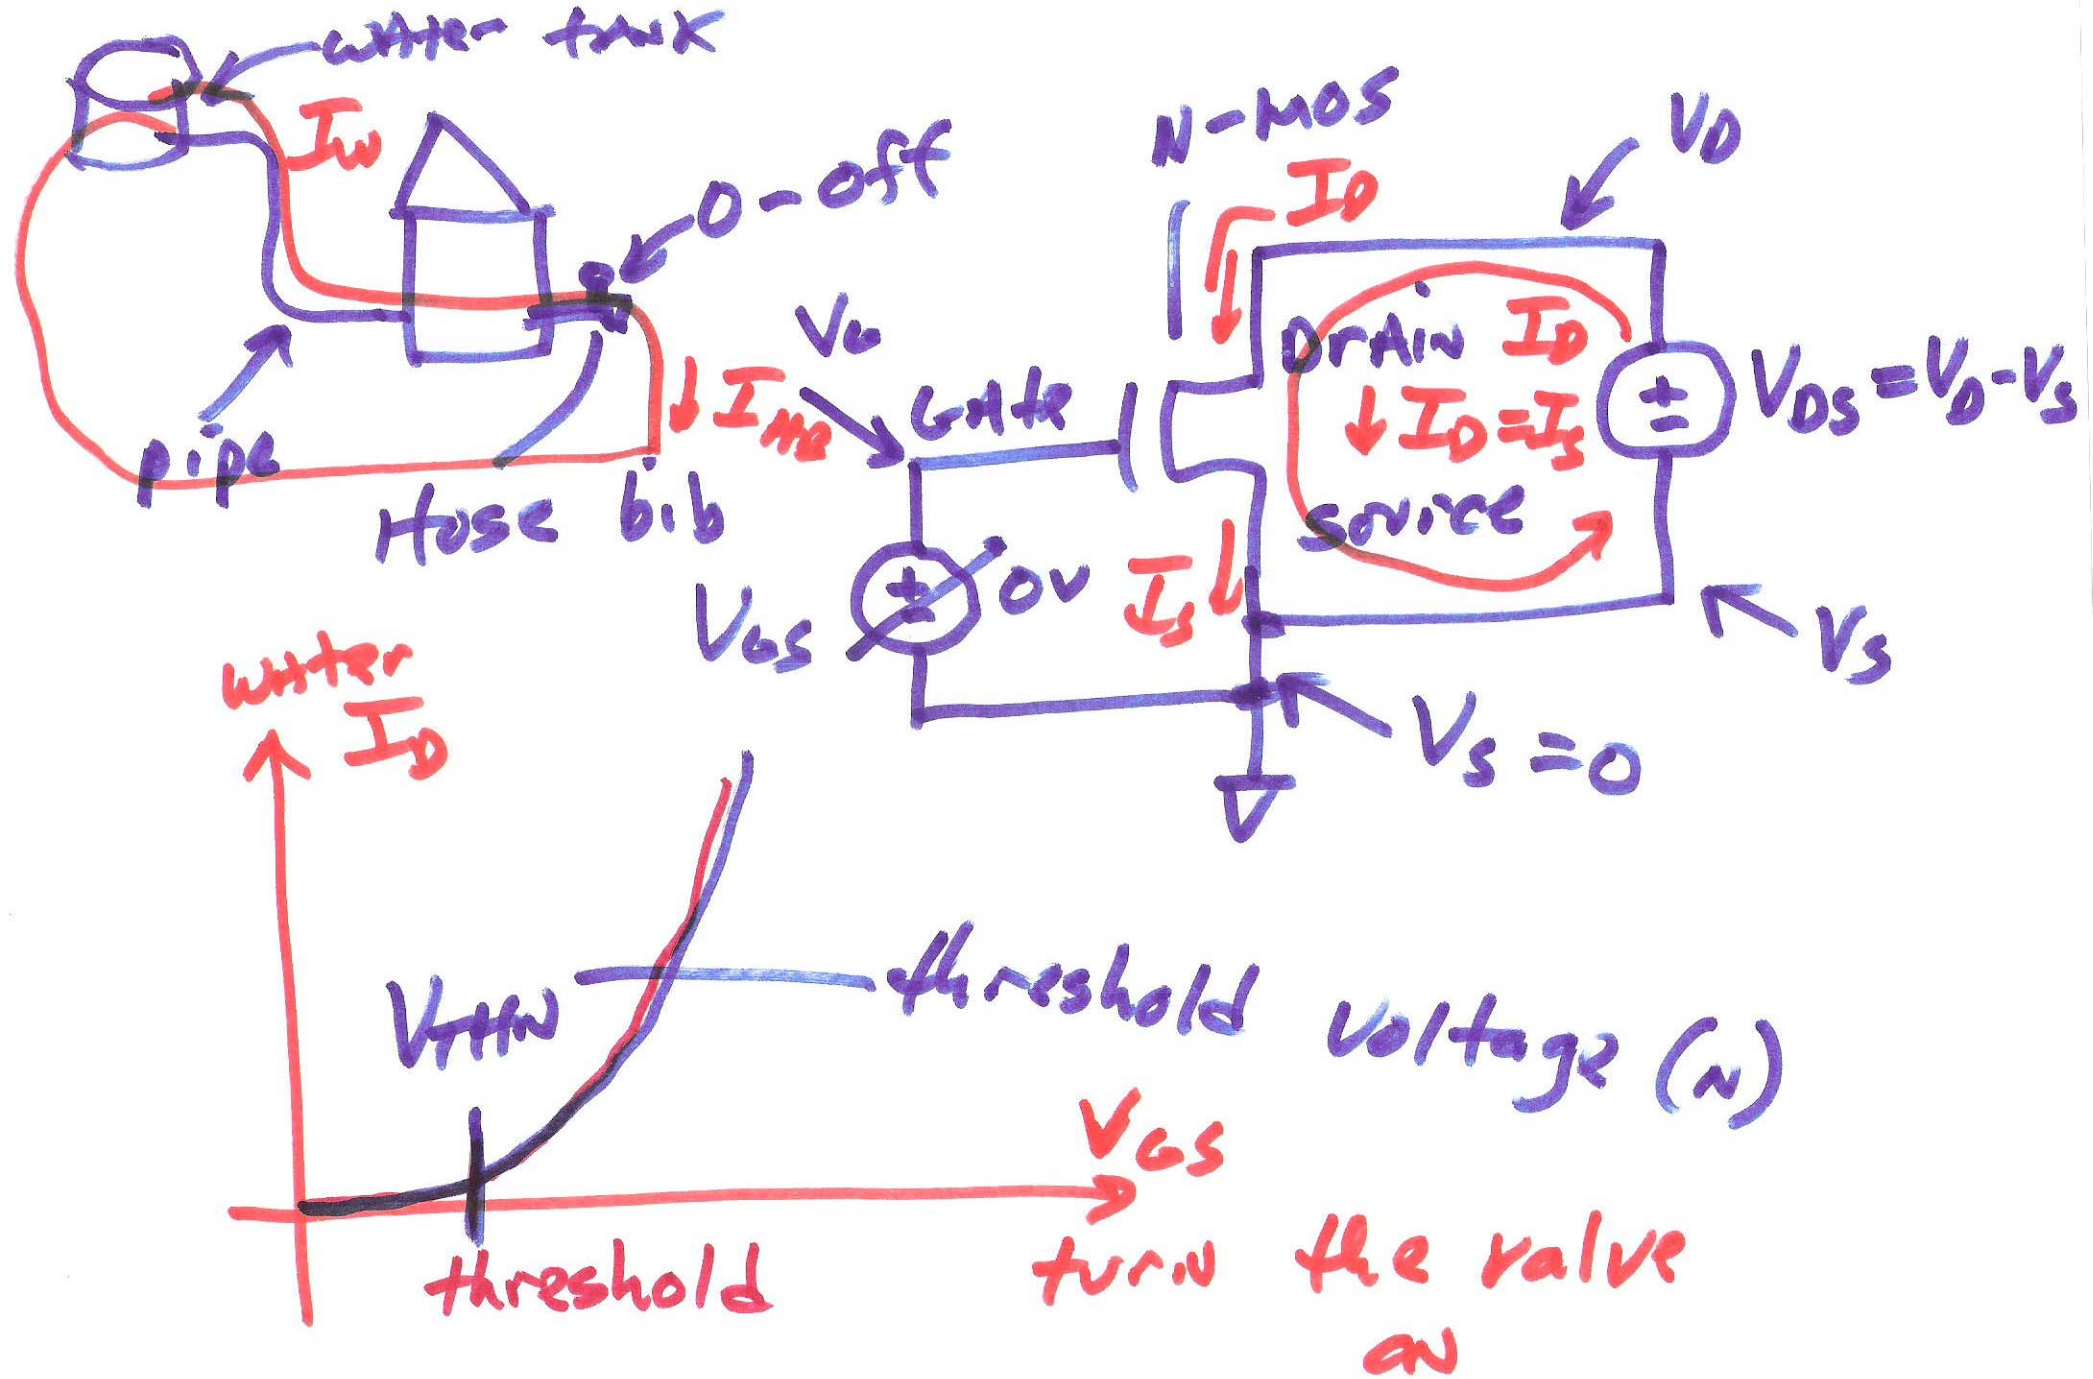 water tank
I_W
0-off
pipe
I_HB
Hose bib
N-MOS
I_D
V_D
V_G
Gate
Drain
I_D
I_D = I_S
V_DS = V_D - V_S
Source
V_GS
+
-
0V
I_S
V_S
V_S = 0
Water
I_D
V_THN
threshold voltage (N)
V_GS
threshold
turn the valve
on